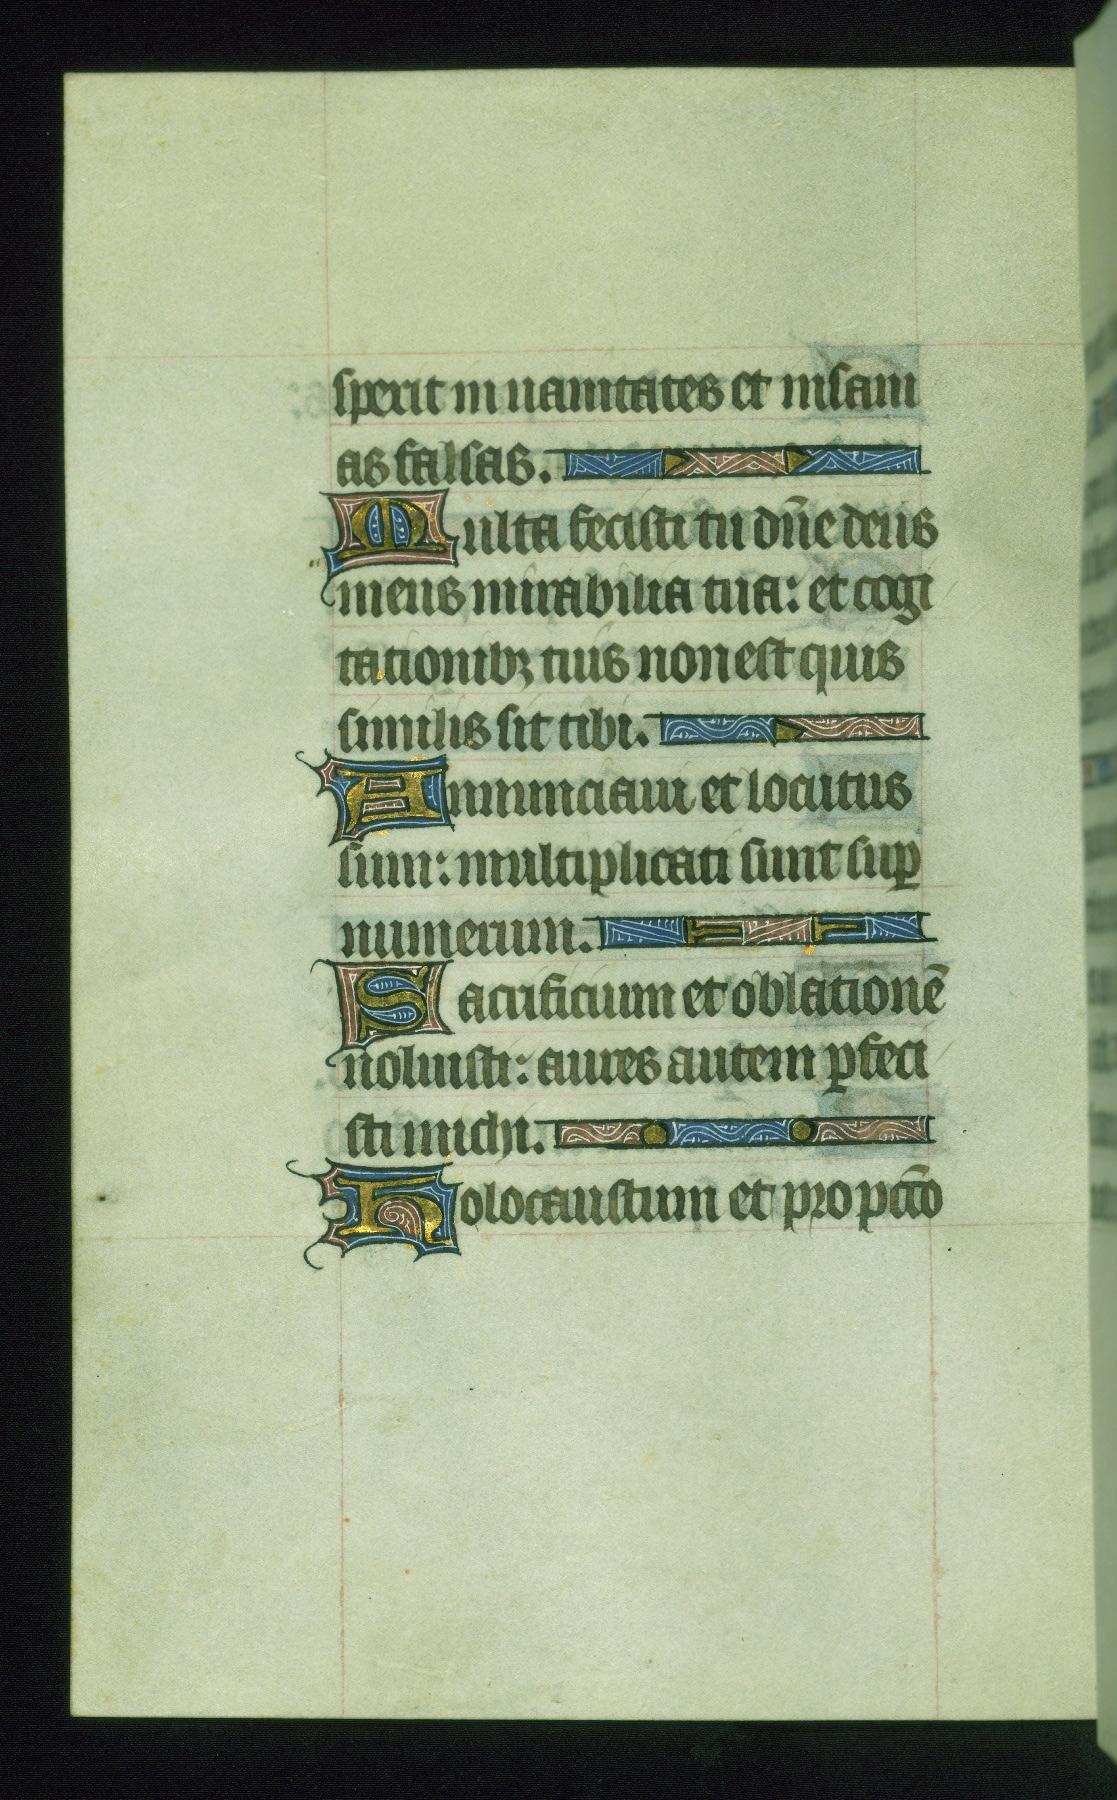 sperit in uanitates et insani
as falsas.
Multa fecisti tu dn̄e deus
meus mirabilia tua: et cogi
tationibꝫ tuis non est quis
similis sit tibi.
Annunciaui et locutus
sum: multiplicati sunt suꝑ
numerum.
Sacrificium et oblationē
noluisti: aures autem ꝑfeci
sti michi.
Holocaustum et pro pctō